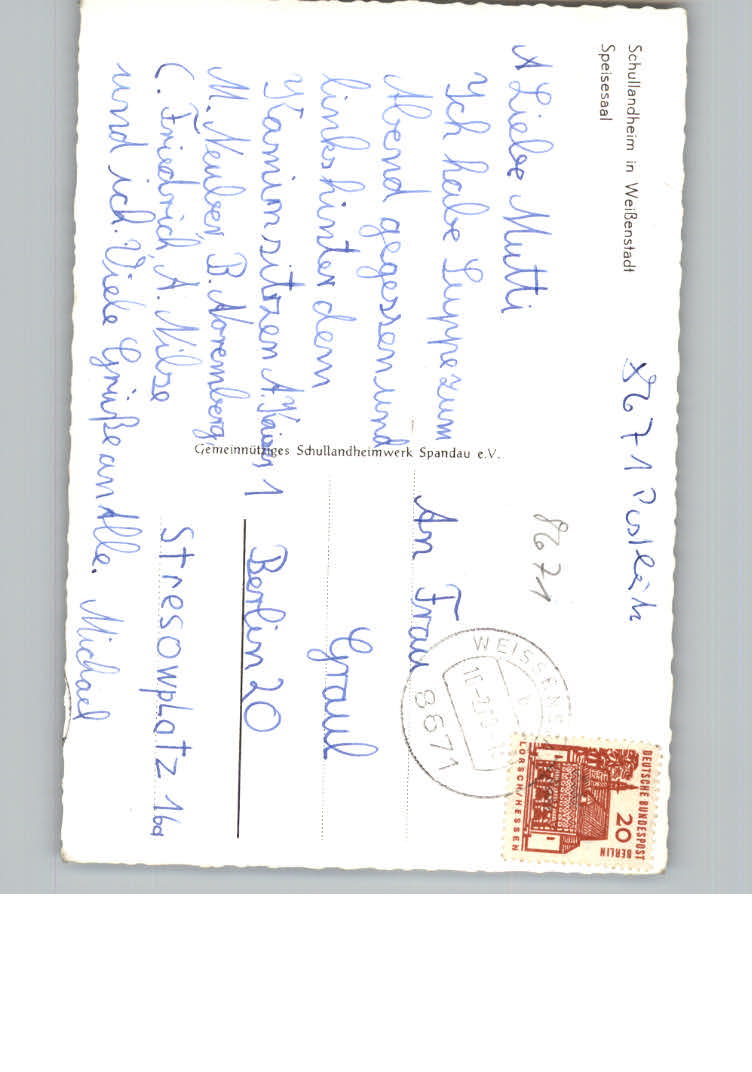 Schullandheim in Weißenstadt
Speisesaal
A Liebe Mutti
Ich habe Suppe zum
Abend gegessen und
links hinter dem
Kamin sitzen A. Kaiser 1
M. Neuber, B. Noremberg,
C. Friedrich, A. Nilse
und ich. Viele Grüße an Alle. Michael
Gemeinnütziges Schullandheimwerk Spandau e.V.
8671
8671
An Frau
Graul
Berlin 20
Stresowplatz 16a
WEISSENS
8671
DEUTSCHE BUNDESPOST
BERLIN
20
LORSCH/HESSEN